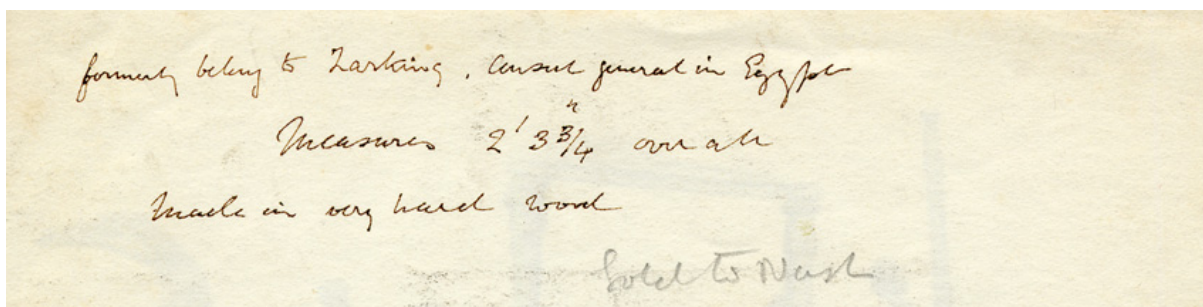 formerly belong to Zarking, Consul general in Egypt
Measures 2' 3 3/4" over all
Made in very hard wood
Sold to Nash